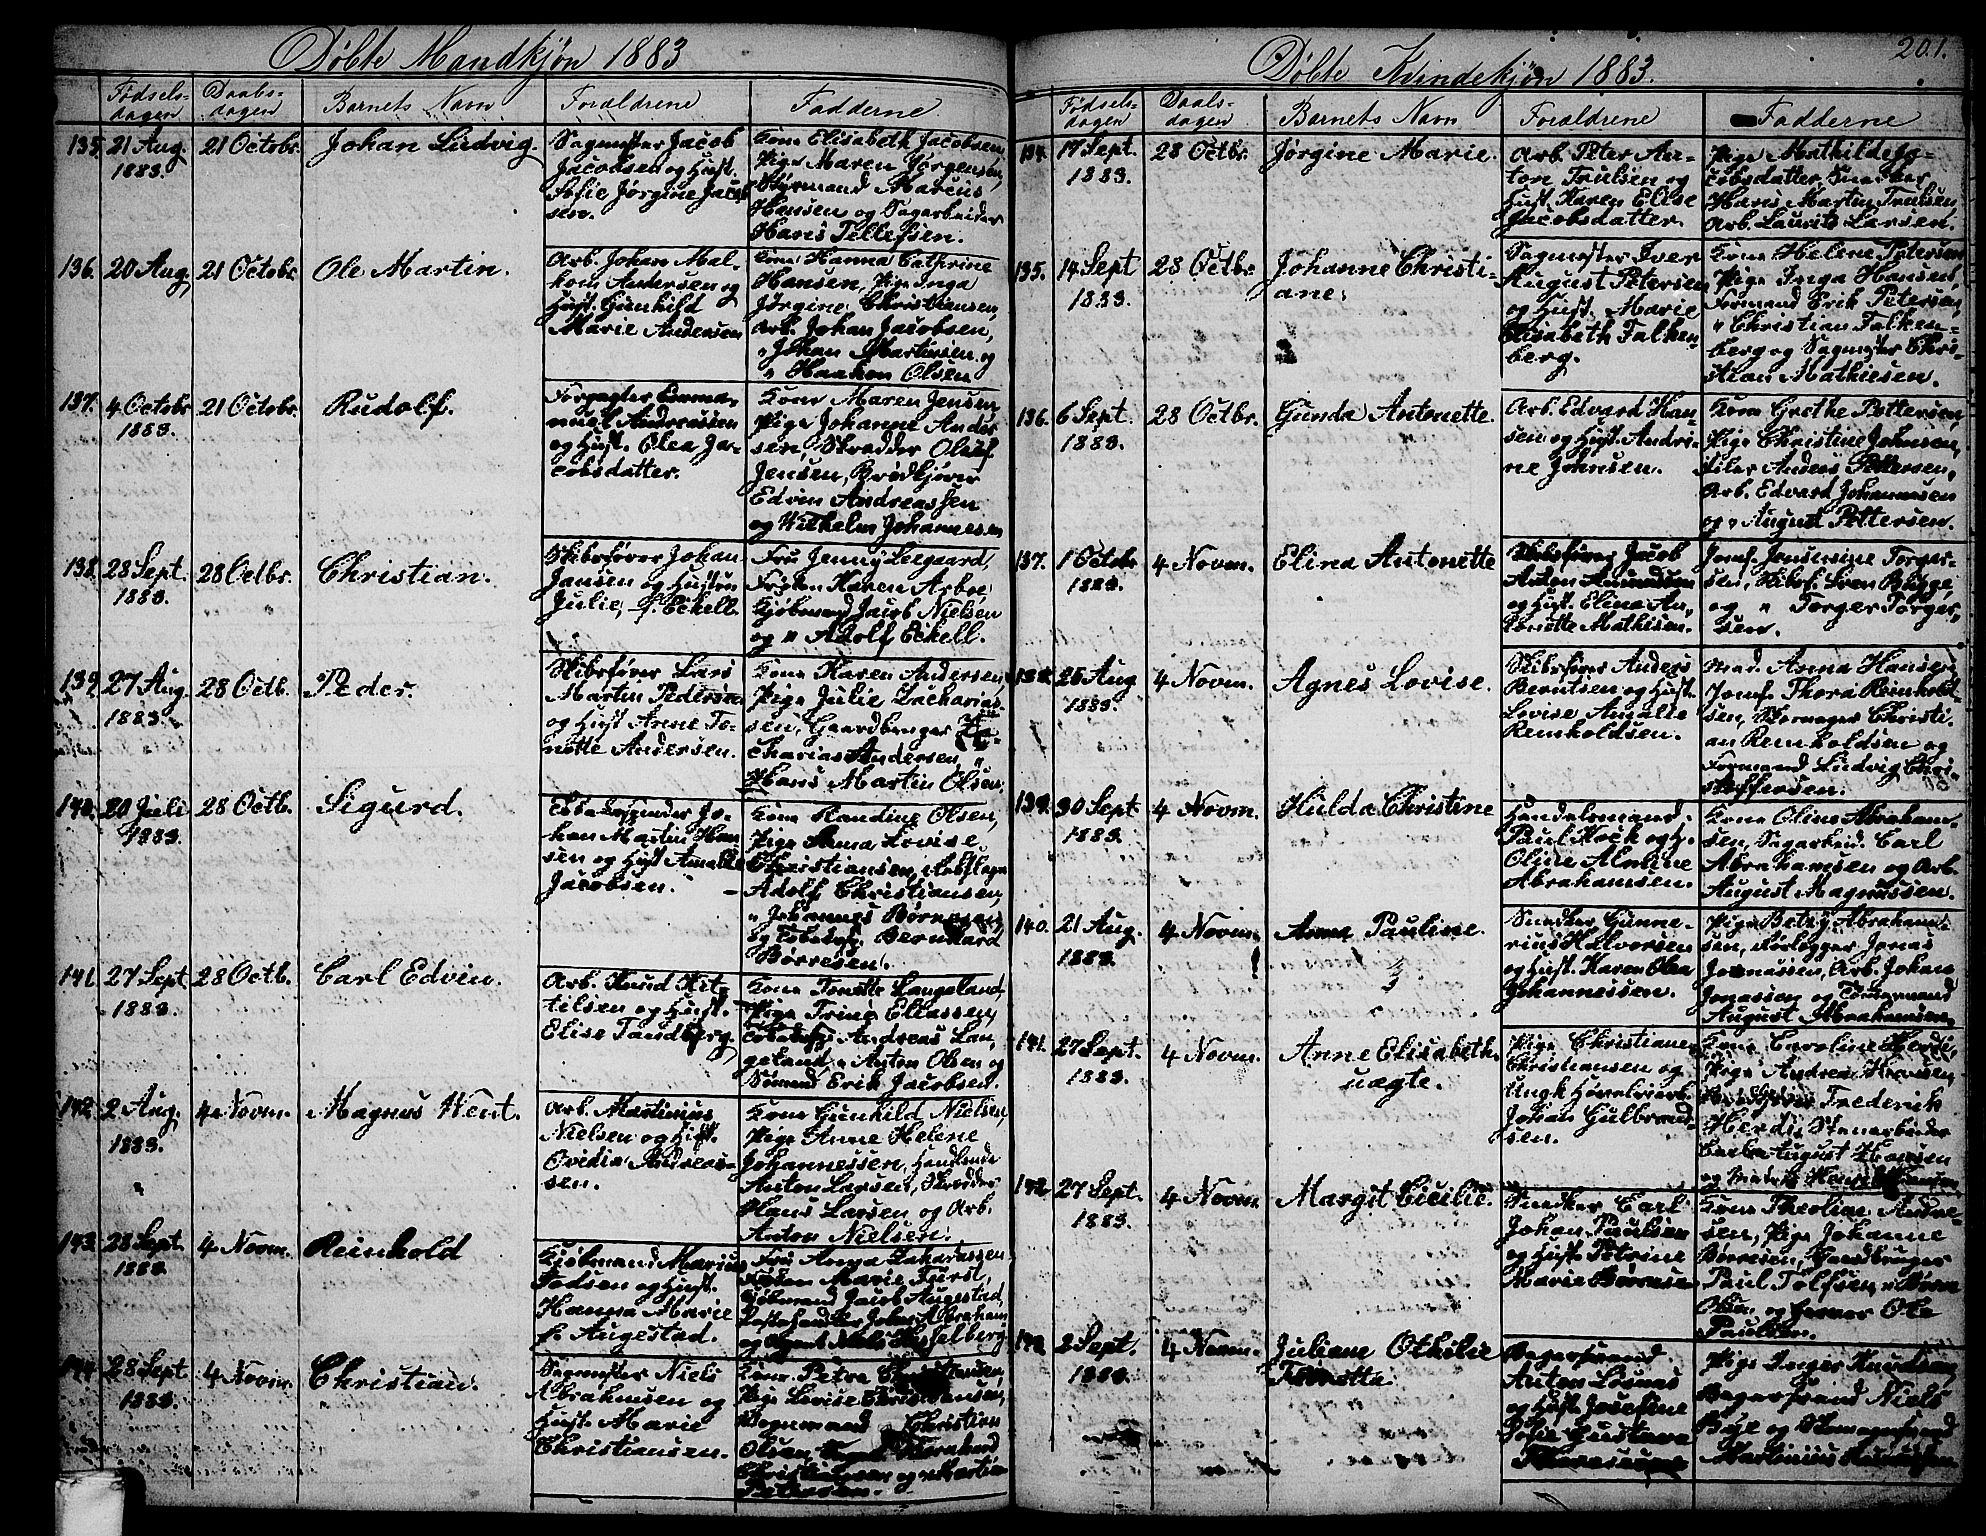 Døbte Mandkjøn 1883
Fødsels-
dagen
Daabs-
dagen
Barnets Navn
Forældrene
Fadderne
135. 21 Aug. 1883. 21 Octobr. Johan Ludvig.
Sagmester Jacob
Jacobsen og Hust.
Sofie Jørgine Jacob
sen.
Kone Elisabeth Jacobsen,
Pige Maren Jørgensen,
Styrmand Marcus
Hansen og Sagarbeider
Hans Tellefsen.
136. 20 Aug. 21 Octobr. Ole Martin.
Arb. Johan Mal-
kom Andersen og
Hust. Gunhild
Marie Andersen
Kone Hanna Cathrine
Hansen, Pige Inga
Jørgine Christiansen,
Arb. Johan Jacobsen,
" Johan Martinsen og
" Haakon Olsen
137. 4 Octobr 1883. 21 Octobr. Rudolf.
Forgylder Emma-
nuel Andreassen
og Hust. Olea Ja-
cobsdatter.
Kone Maren Jensen
Pige Johanne Ander
sen, Skrædder Oluf
Jensen, Brødkjører
Edvin Andreassen
og Wilhelm Johannesen
138. 28 Sept. 1883. 28 Octbr. Christian.
Skibsfører Johan
Jansen og Hustru
Julie, f. Eckell.
Fru Jenny Leegaard,
Frøken Karen Arbo,
Kjøbmand Jacob Nielsen
og " Adolf Eckell.
139. 27 Aug. 1883. 28 Octb. Peder.
Skibsfører Lars
Martin Pedersen
og Hust Anne To-
nette Andersen.
Kone Karen Andersen,
Pige Julie Zacharias-
sen, Gaardbruger Za-
charias Andersen, "
Hans Martin Olsen.
140. 20 Juli 1883. 28 Octb. Sigurd.
Tobaksspinder Jo-
han Martin Han-
sen og Hust Amalie
Jacobsen.
Kone Randine Olsen,
Pige Anna Lovise
Christiansen,
Adolf Christiansen,
" Johannes Børresen,
og Tobaksf. Bernhard
Børresen.
141. 27 Sept 1883. 28 Octb. Carl Edvin.
Arb. Knud Kit-
tilsen og Hust.
Elise Tandberg.
Kone Tonette Langeland
Pige Trine Eliassen,
Andreas Lan-
geland, " Anton Olsen og
Sømand Erik Jacobsen.
142. 2 Aug. 1883. 4 Novm. Magnus Went.
Arb. Martinius
Nielsen og Hust.
Ovidia Andreas-
sen.
Kone Gunhild Nielsen,
Pige Anne Helene
Johannessen, Handlende
Anton Larsen, Skrædder
Hans Larsen og Arb.
Anton Nielsen.
143. 28 Sept. 1883. 4 Novm. Reinhold
Kjøbmand Marius
Todsen og Hust.
Hanna Marie
f. Augestad.
Fru Anna Zakariassen
Frøken Marie Furst,
Kjøbmand Jacob Augestad,
Abraham
og Agent Niels Hesselberg
144. 28 Sept 1883. 4 Novm. Christian.
Sagmester Niels
Abrahamsen og
Hust. Marie
Christiansen.
Kone Petra
Pige Lovise Christiansen,
Christian
Olsen,
og Martin
Petersen.
Døbte Kvindekjøn 1883. 201.
Fødsels-
dagen
Daabs-
dagen
Barnets Navn
Forældrene
Fadderne
134. 17 Sept. 1883. 28 Octbr. Jørgine Marie.
Arb. Peter An-
ton Trulsen og
Hust. Karen Elise
Jacobsdatter.
Pige Mathilde Ja-
cobsdatter, Snedker
Hans Martin Trulsen,
Arb. Laurits Larsen.
135. 14 Sept 1883. 28 Octbr. Johanne Christi-
ane.
Sagmester Iver
August Petersen
og Hust. Marie
Elisabeth Falken
berg.
Kone Helene Petersen
Pige Inga Hansen,
Formand Erik Petersen,
" Christian Falken-
berg og Sagmester Chri-
stian Mathiesen.
136. 6 Sept. 1883. 28 Octbr. Gunda Antonette
Arb. Edvard Han-
sen og Hust. Andri-
ne Johnsen.
Kone Grethe Pettersen,
Pige Christine Johnsen,
Filer Anders Pettersen,
Arb. Edvard Johannesen
og " August Pettersen.
137. 1 Octobr 1883. 4 Novm. Elina Antonette
Skibsfører Jacob
Anton Amundsen
og Hust. Elina An-
tonette Mathisen.
Jomf. Jensine Torger-
sen, Skibsf. Sven Bugge,
og " Torger Torger-
sen.
138. 25 Aug 1883. 4 Novm. Agnes Lovise.
Skibsfører Anders
Berntsen og Hust
Lovise Amalie
Reinholdsen.
Mad. Anna Hansen
Jomf. Thora Reinhold
sen, Christi-
an Reinholdsen og
Formand Ludvig Chri-
stoffersen.
139. 30 Sept 1883. 4 Novm. Hulda Christine
Handelsmand
Paul Hock og H.
Oline Almine
Abrahamsen.
Kone Oline Abraham-
sen, Sagarbeid. Carl
Abrahamsen og Arb.
August Magnussen.
140. 21 Aug. 1883. 4 Novm. Anna Pauline.
Snedker Gunne-
rius Halvorsen
og Hust. Karen Olea
Johannessen.
Pige Betzy Abraham-
sen, Jonas
Jonassen, Arb. Johan
Jonassen og Tømmermand
August Abrahamsen.
141. 27 Sept. 1883. 4 Novm. Anne Elisabeth.
uægte.
Pige Christiane
Christiansen og
Ungk
Johan Gulbrand-
sen.
Kone Caroline Herdi,
Pige Andrea Hansen,
Frederik
Herdi, Stenarbeider
August Hansen
og
142. 27 Sept. 1883. 4 Novm. Margit Cicilie.
Snedker Carl
Johan Paulsen
og Hust. Petrine
Marie Børresen
Kone Theoline Andre-
sen, Pige Johanne
Børresen, Gaardbruger
Paul Tolfsen, " Børre
Olsen og Ole
Paulsen.
143. 2 Sept. 1883. 4 Novm. Juliane Othilie
Tomette.
Bøgersvend
Anton
og Hust Josefine
Sofie Gustava
Pige Inger Knudsen
Niels
Boje og
Martinius Rasmussen